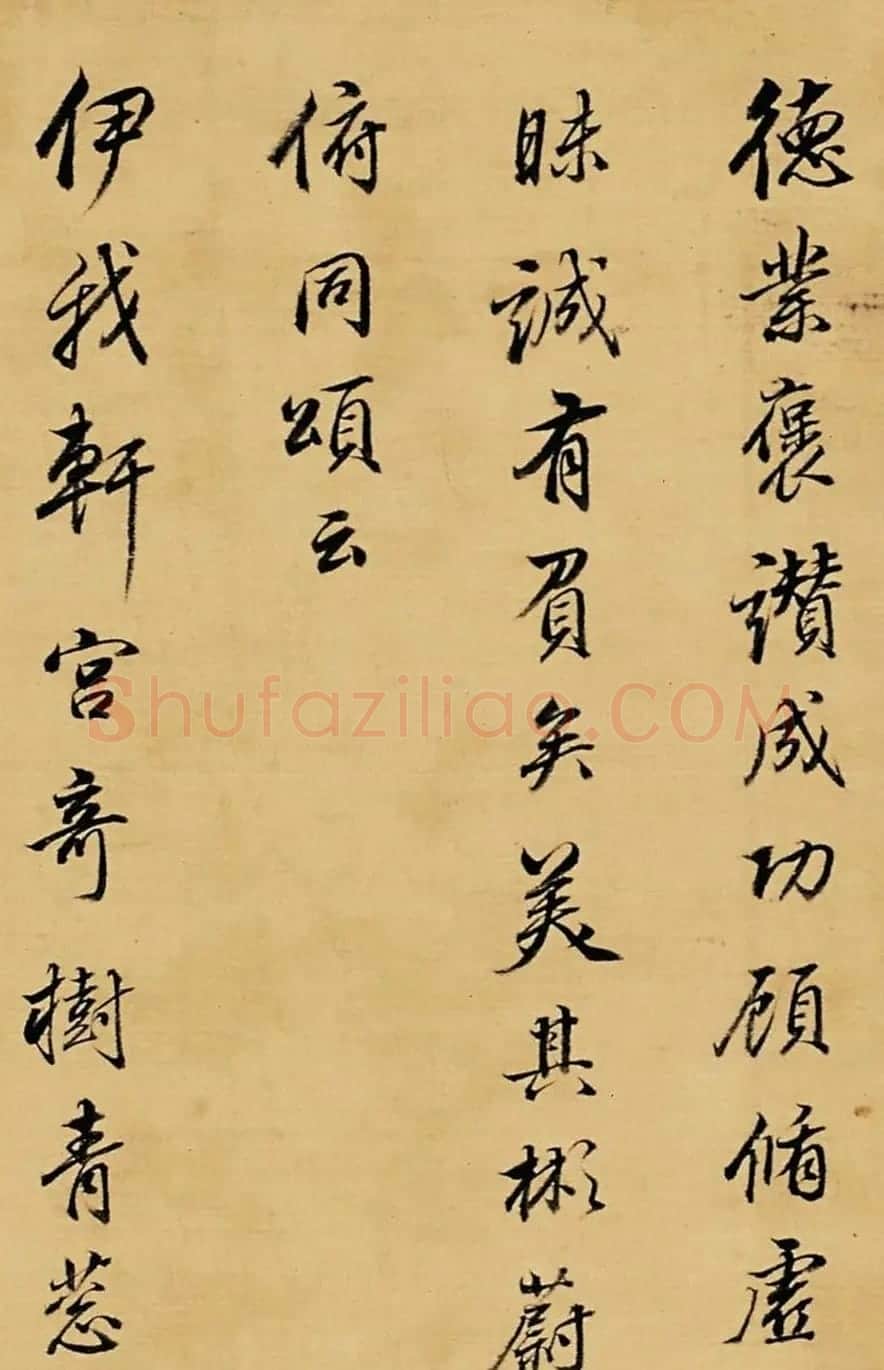 德業褒讚成功顧脩虛
昧誠有負矣美其彬蔚
俯同頌云
伊我軒宮奇樹青蔥
Shufaziliao.COM